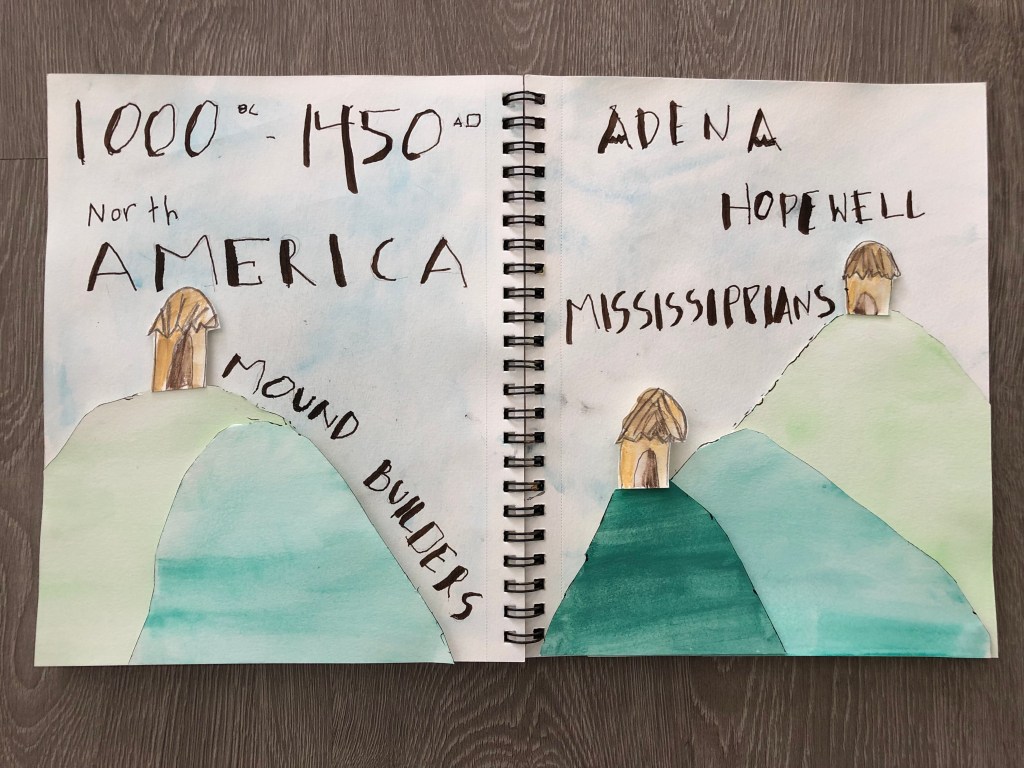 1000 BC - 1450 AD
North
AMERICA
MOUND BUILDERS
ADENA
HOPEWELL
MISSISSIPPIANS